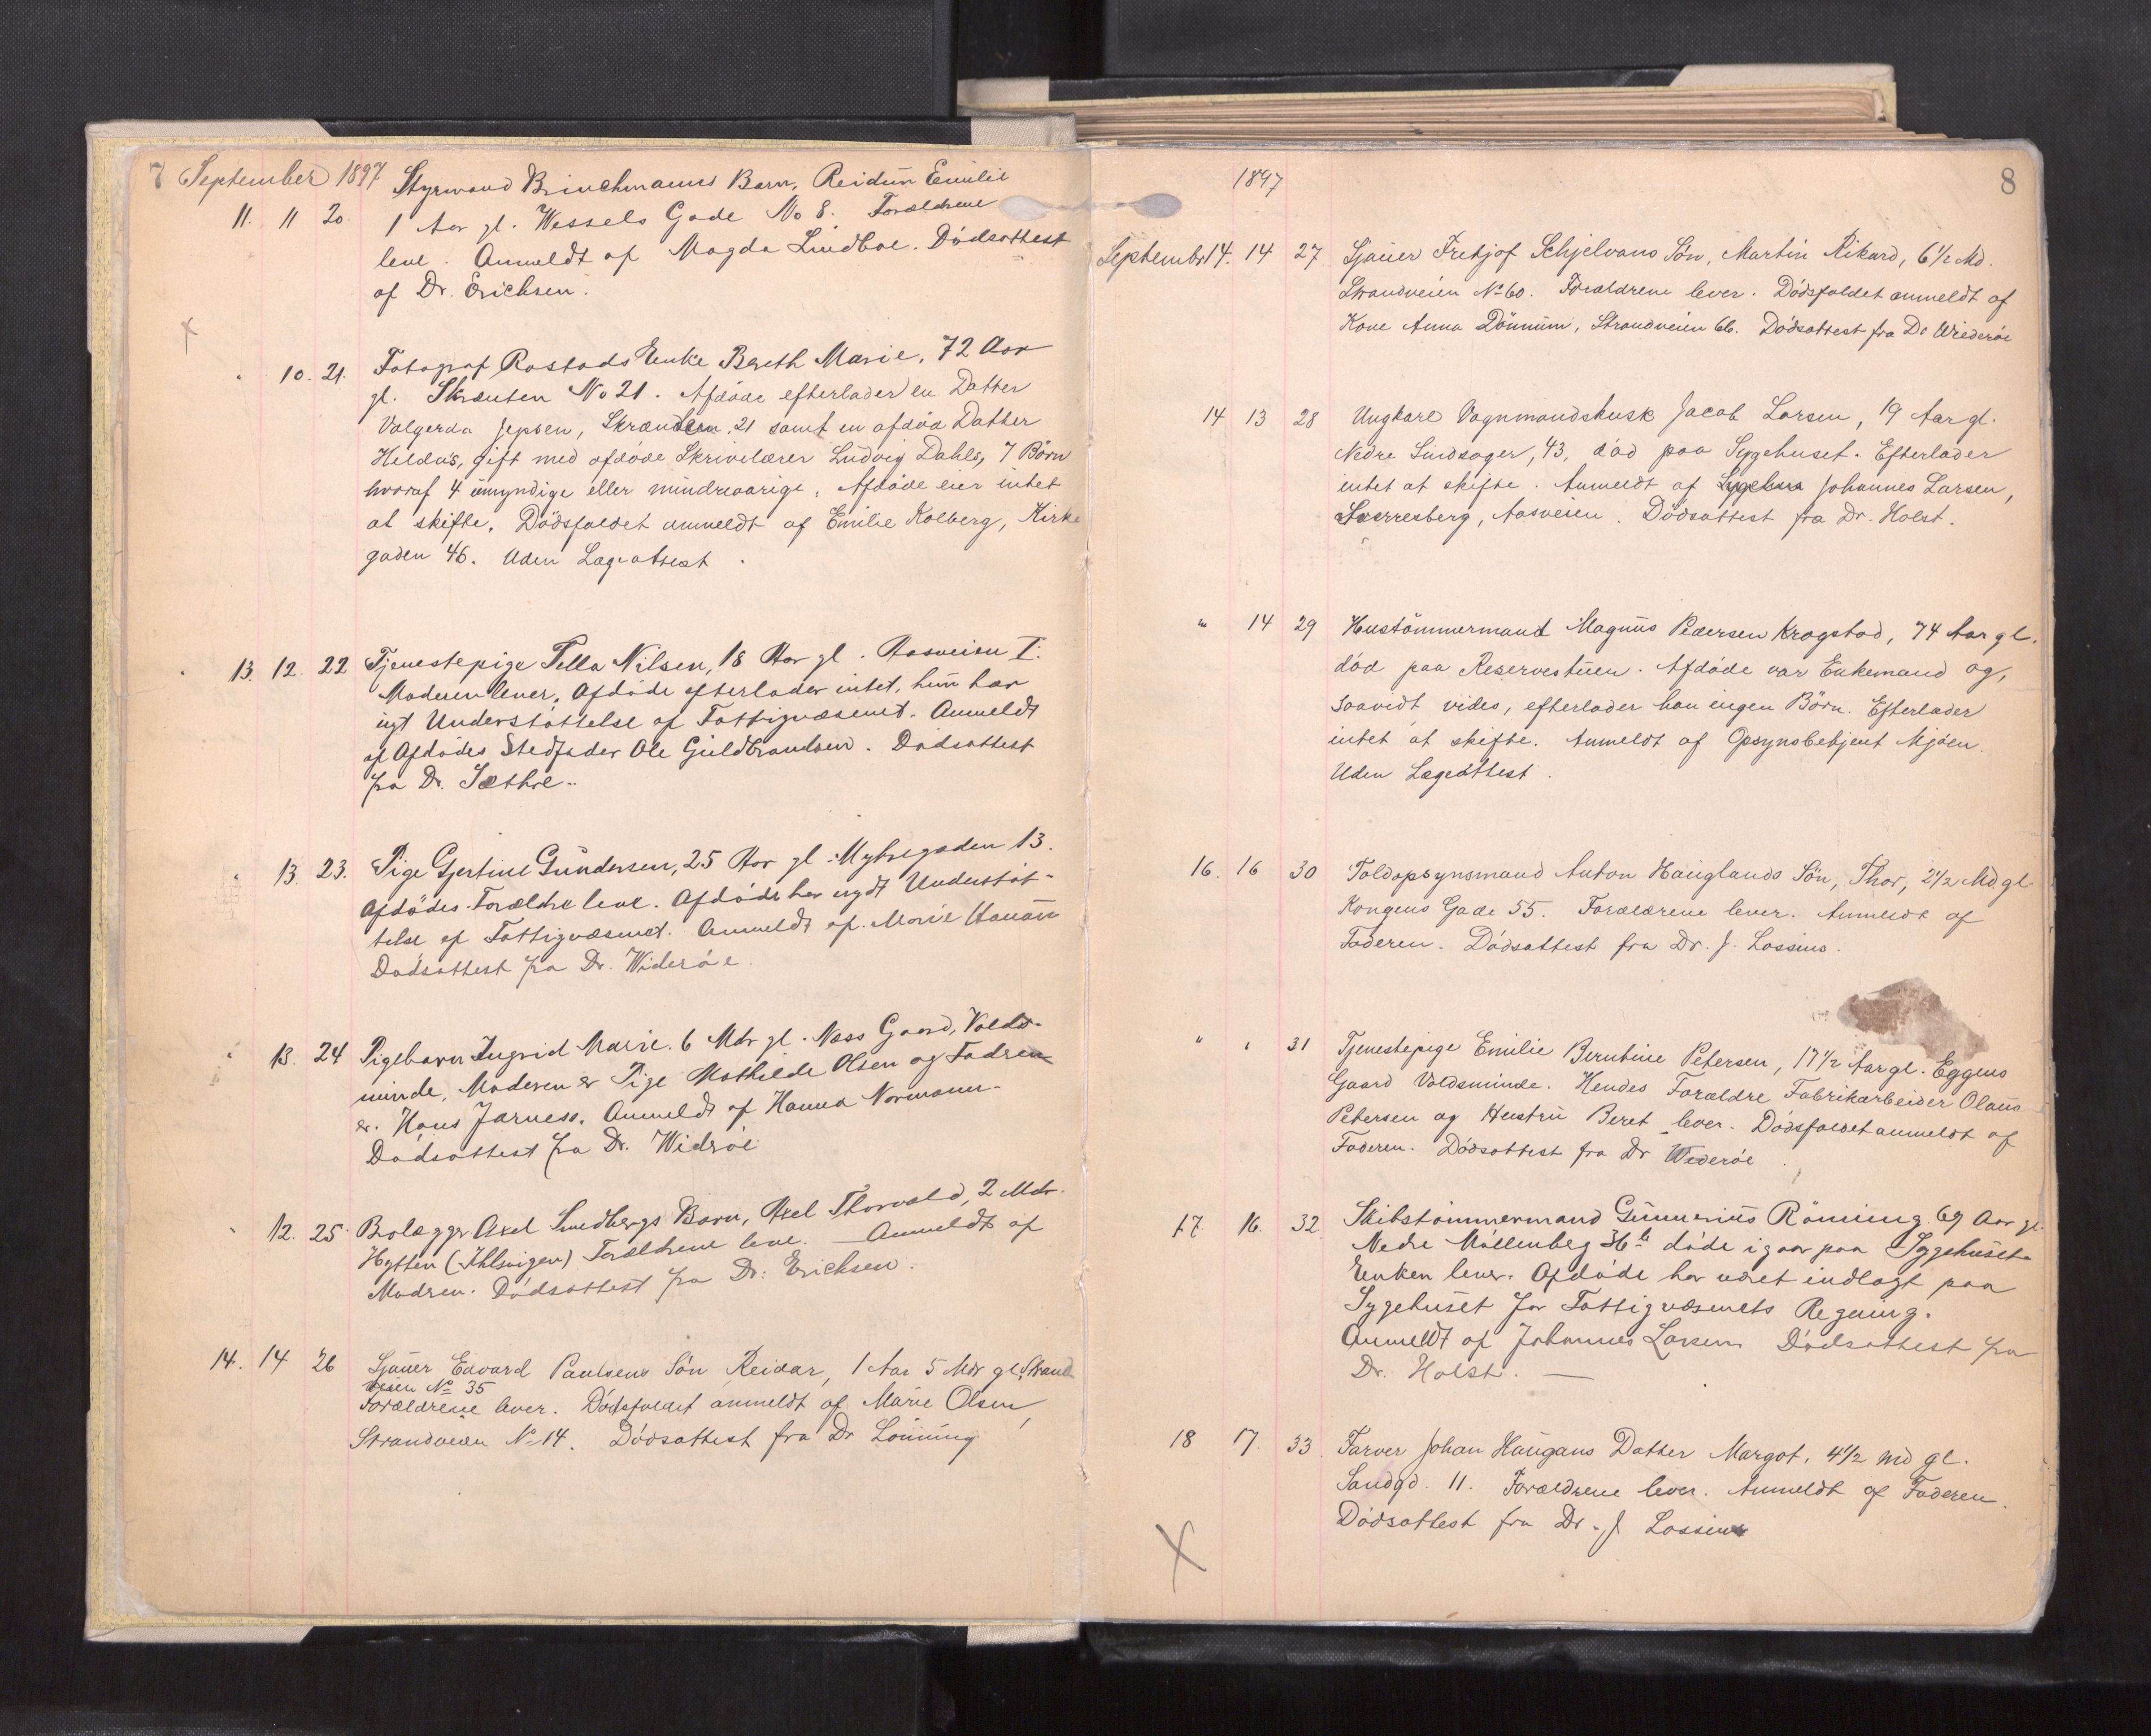 7 September 1897 Styrmand Brinchmanns Barn, Reidun Emilie
11. 11 20. 1 Aar gl. Wessels Gade No 8. Forældrene
leve. Anmeldt af Magda Lindboe. Dødsattest
af Dr. Erichsen.
" 10. 21. Fotograf Rostads Enke Bereth Marie, 72 Aar
gl. Skrænten No 21. Afdøde efterlader en Datter
Valgerda Jepsen, Skrænten, 21 samt en afdød Datter
Hildas, gift med afdøde Skrivelærer Ludvig Dahls, 7 Børn
hvoraf 4 umyndige eller mindreaarige. Afdøde eier intet
at skifte. Dødsfaldet anmeldt af Emilie Kolberg, Kirke
gaden 46. Uden Lægeattest.
" 13. 12. 22 Tjenestepige Pella Nilsen, 18 Aar gl. Aasveien I.
Moderen lever. Afdøde efterlader intet, hun har
nyt Understøttelse af Fattigvæsenet. Anmeldt
af Afdødes Stedfader Ole Guldbrandsen. Dødsattest
fra Dr. Sæthre.
" 13. 23. Pige Gjertine Gundersen, 25 Aar gl. Nybrogaden 13.
Afdødes Forældre leve. Afdøde har nydt Understøt-
telse af Fattigvæsenet. Anmeldt af Marie
Dødsattest fra Dr. Widerøe.
" 13. 24 Pigebarn Ingrid Marie. 6 Mdr gl. Næss Gaard, Volds-
minde, Moderen er Pige Mathilde Olsen og Fadren
er. Hans Jarness. Anmeldt af Hanna Normann.
Dødsattest fra Dr. Widrøe
" 12. 25. Brolægger Axel Lundbergs Barn, Axel Thorvald, 2 Mdr.
Hytten (Ihlsvigen) Forældrene leve. Anmeldt af
Modren. Dødsattest fra Dr. Erichsen.
14. 14 26 Sjauer Edvard Paulsens Søn Reidar, 1 Aar 5 Mdr gl. Strand
veien No 35
Forældrene lever. Dødsfaldet anmeldt af Marie Olsen,
Strandveien No 14. Dødsattest fra Dr Lønning
1897 8
September 14. 14 27 Sjauer Fritjof Schjelvans Søn, Martin Rikard, 6 1/2 Md.
Strandveien No 60. Forældrene lever. Dødsfaldet anmeldt af
Kone Anna Dønnum, Strandveien 66. Dødsattest fra Dr Wiederøe
14 13 28 Ungkarl Vognmandskusk Jacob Larsen, 19 Aar gl.
Nedre Sindsager, 43, død paa Sygehuset. Efterlader
intet at skifte. Anmeldt af Johannes Larsen,
Sverresberg, Aasveien. Dødsattest fra Dr. Holst.
" 14 29 Hustømmermand Magnus Pedersen Krogstad, 74 Aar gl.
død paa Reservestuen. Afdøde var Enkemand og,
saavidt vides, efterlader han ingen Børn. Efterlader
intet at skifte. Anmeldt af Opsynsbetjent Mjøen.
Uden Lægeattest.
16. 16 30 Toldopsynsmand Anton Hauglands Søn, Thor, 2 1/2 Md. gl.
Kongens Gade 55. Forældrene lever. Anmeldt af
Faderen. Dødsattest fra Dr. J. Lossius.
" " 31 Tjenestepige Emilie Berntine Petersen, 17 1/2 Aar gl. Eggens
Gaard Voldsminde. Hendes Forældre Fabrikarbeider Olaus
Petersen og Hustru Beret lever. Dødsfaldet anmeldt af
Faderen. Dødsattest fra Dr Wederøe.
17 16. 32 Skibstømmermand Gunnerius Rønning. 69 Aar gl.
Nedre Møllenberg 36 b døde igaar paa Sygehuset.
Enken lever. Afdøde har været indlagt paa
Sygehuset for Fattigvæsenets Regning.
Anmeldt af Johannes Larsen. Dødsattest fra
Dr. Holst. —
18 17. 33 Farver Johan Haugans Datter Margot, 4 1/2 Md gl.
Sandgd. 11. Forældrene lever. Anmeldt af Faderen.
Dødsattest fra Dr. J Lossius